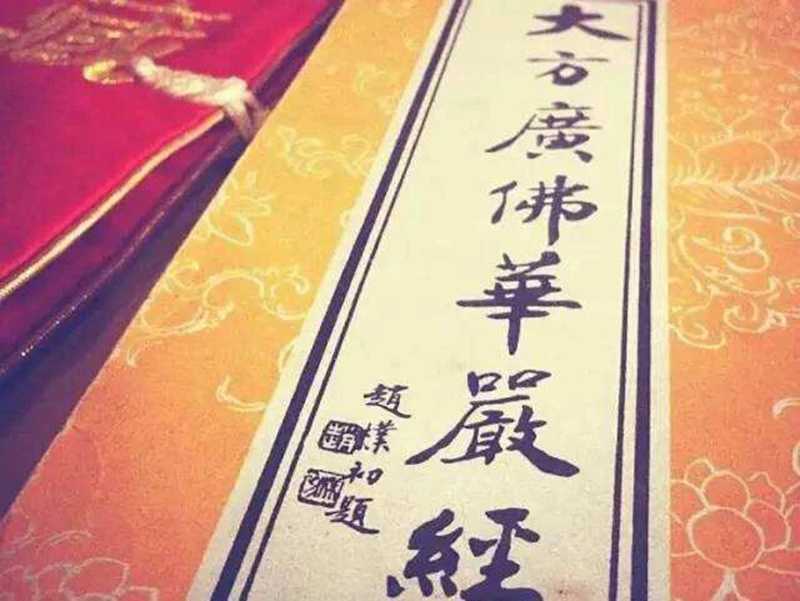 大方廣佛華嚴經
趙樸初題